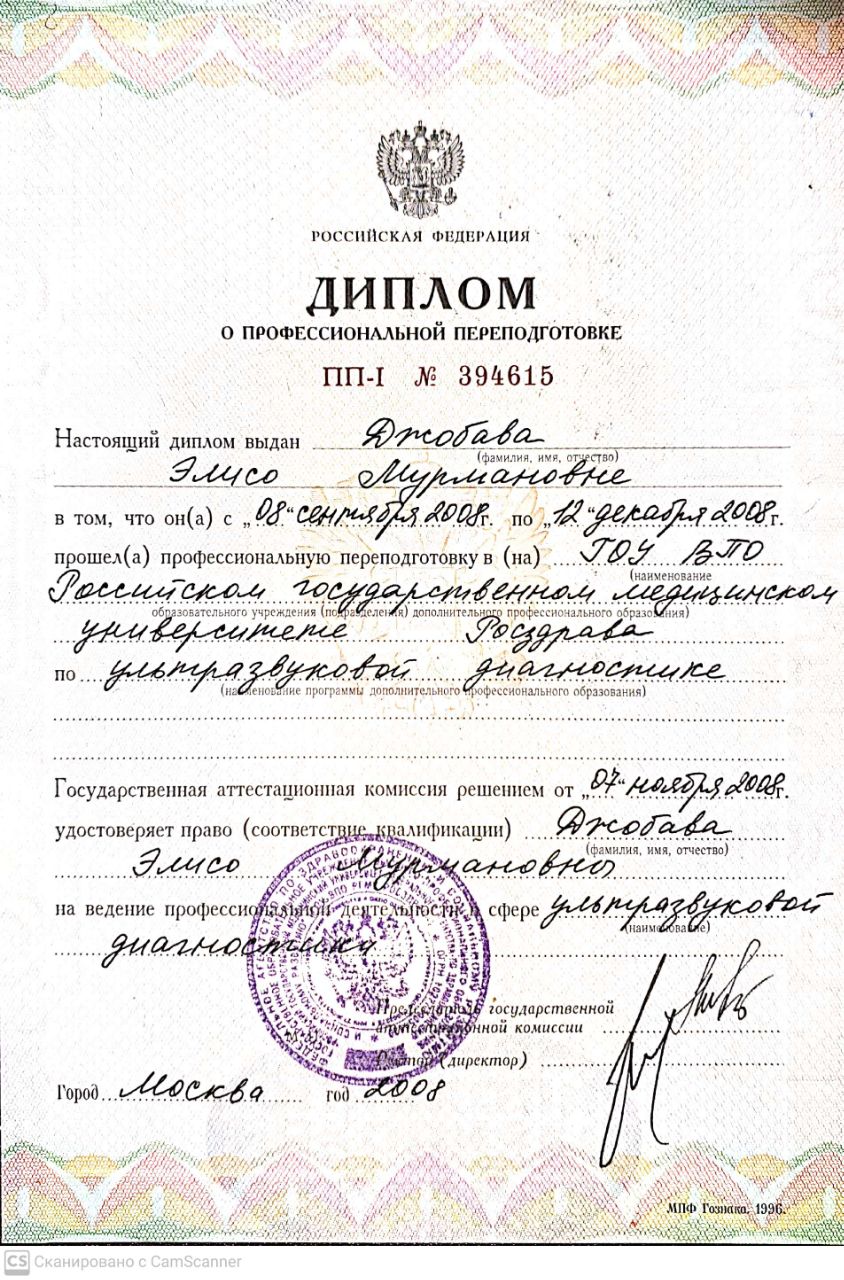 РОССИЙСКАЯ ФЕДЕРАЦИЯ
ДИПЛОМ
О ПРОФЕССИОНАЛЬНОЙ ПЕРЕПОДГОТОВКЕ
ПП-I № 394615
Настоящий диплом выдан Джобава
(фамилия, имя, отчество)
Элисо Мурмановне
в том, что он(а) с „08“ сентября 2008г. по „12“ декабря 2008г.
прошел(а) профессиональную переподготовку в (на) ГОУ ВПО
(наименование
Российском государственном медицинском
образовательного учреждения (подразделения) дополнительного профессионального образования)
университете Росздрава
по ультразвуковой диагностике
(наименование программы дополнительного профессионального образования)
Государственная аттестационная комиссия решением от „07“ ноября 2008г.
удостоверяет право (соответствие квалификации) Джобава
(фамилия, имя, отчество)
Элисо Мурмановны
на ведение профессиональной деятельности в сфере ультразвуковой
(наименование)
диагностики
Председатель государственной
аттестационной комиссии
Ректор (директор)
Город Москва год 2008
МПФ Гознака. 1996.
CS Сканировано с CamScanner